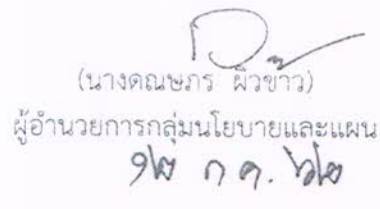 (นางคณษภร ผิวขาว)
ผู้อำนวยการกลุ่มนโยบายและแผน
๑๒ ก ค. ๖๒